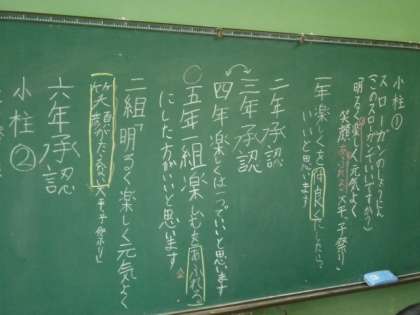 小柱①
スローガンのしょうにん
(このスローガンでいいですか)
「明るく楽しく元気よく
笑顔あふれるスギっ子祭り」
一年 楽しくを仲良くにしたら
いいと思います
二年承認
三年承認
四年 楽しくは入っていいと思います
五年 組 楽しむを あふれる
にした方がいいと思います
二組「明るく楽しく元気よく
笑顔がたくさんスギっ子祭り」
六年承認
小柱②